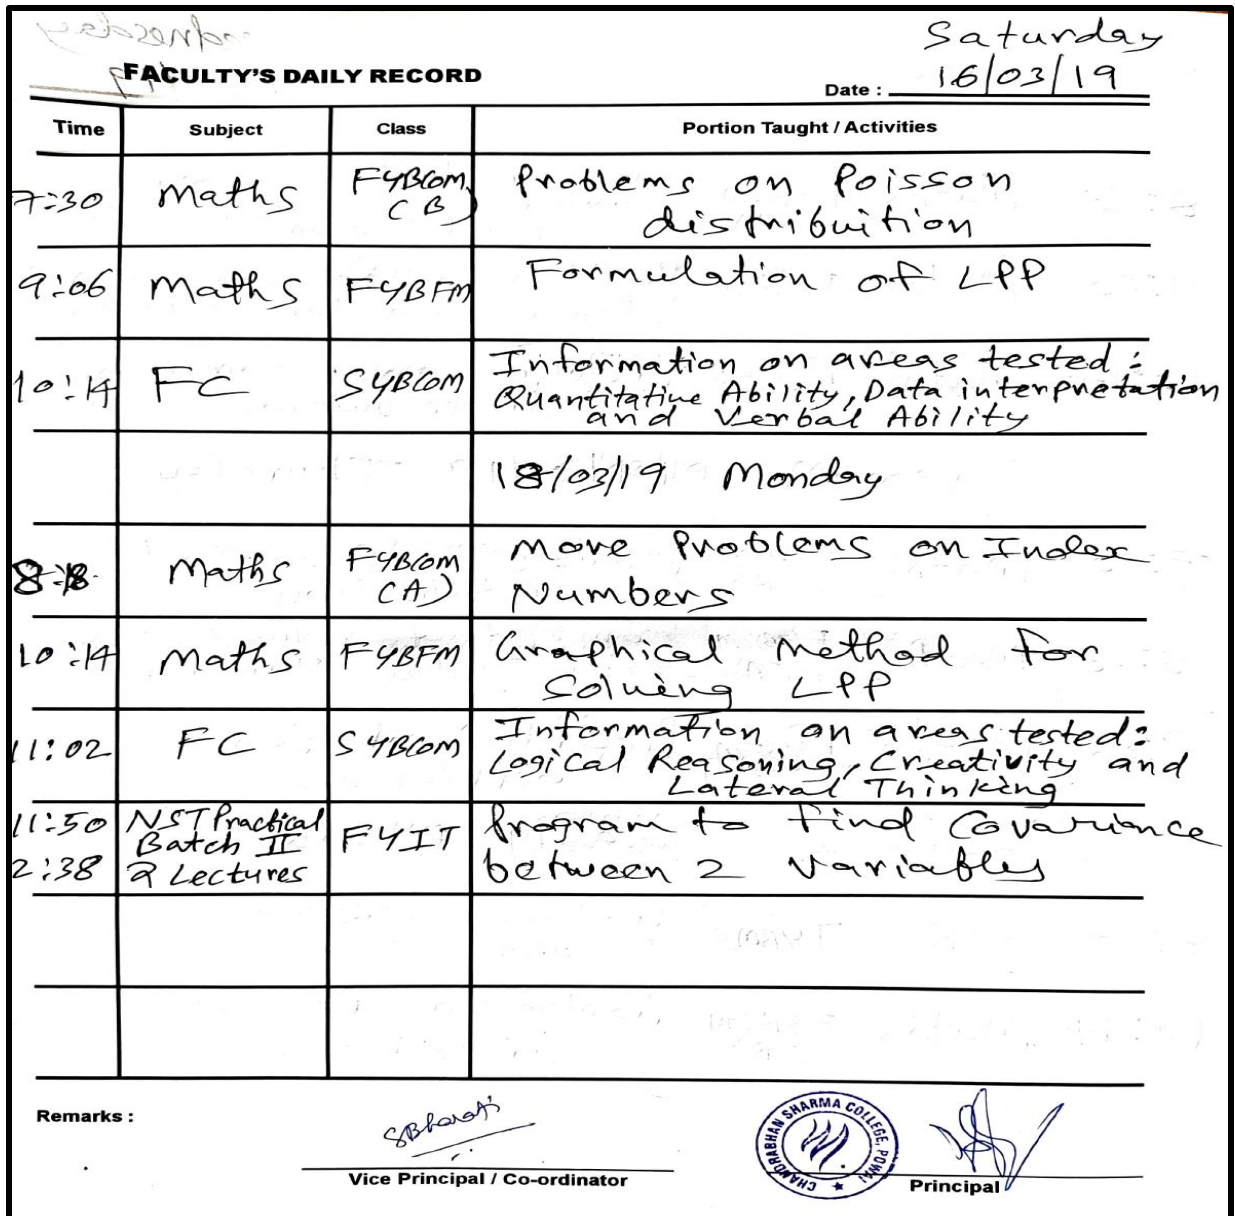 Saturday
FACULTY'S DAILY RECORD
Date : 16/03/19
Time Subject Class Portion Taught / Activities
7:30 Maths FYBCOM (B) Problems on Poisson
distribuition
9:06 Maths FYBFM Formulation of LPP
10:14 FC SYBCOM Information on areas tested :
Quantitative Ability, Data interpretation
and Verbal Ability
18/03/19 Monday
8:18 Maths FYBCOM (A) More Problems on Index
Numbers
10:14 Maths FYBFM Graphical Method for
Solving LPP
11:02 FC SYBCOM Information on areas tested:
Logical Reasoning, Creativity and
Lateral Thinking
11:50 NST Practical FYIT Program to find Covariance
Batch II
2:38 2 Lectures between 2 variables
Remarks :
SBharati
CHANDRABHAN SHARMA COLLEGE, POWAI
Vice Principal / Co-ordinator Principal